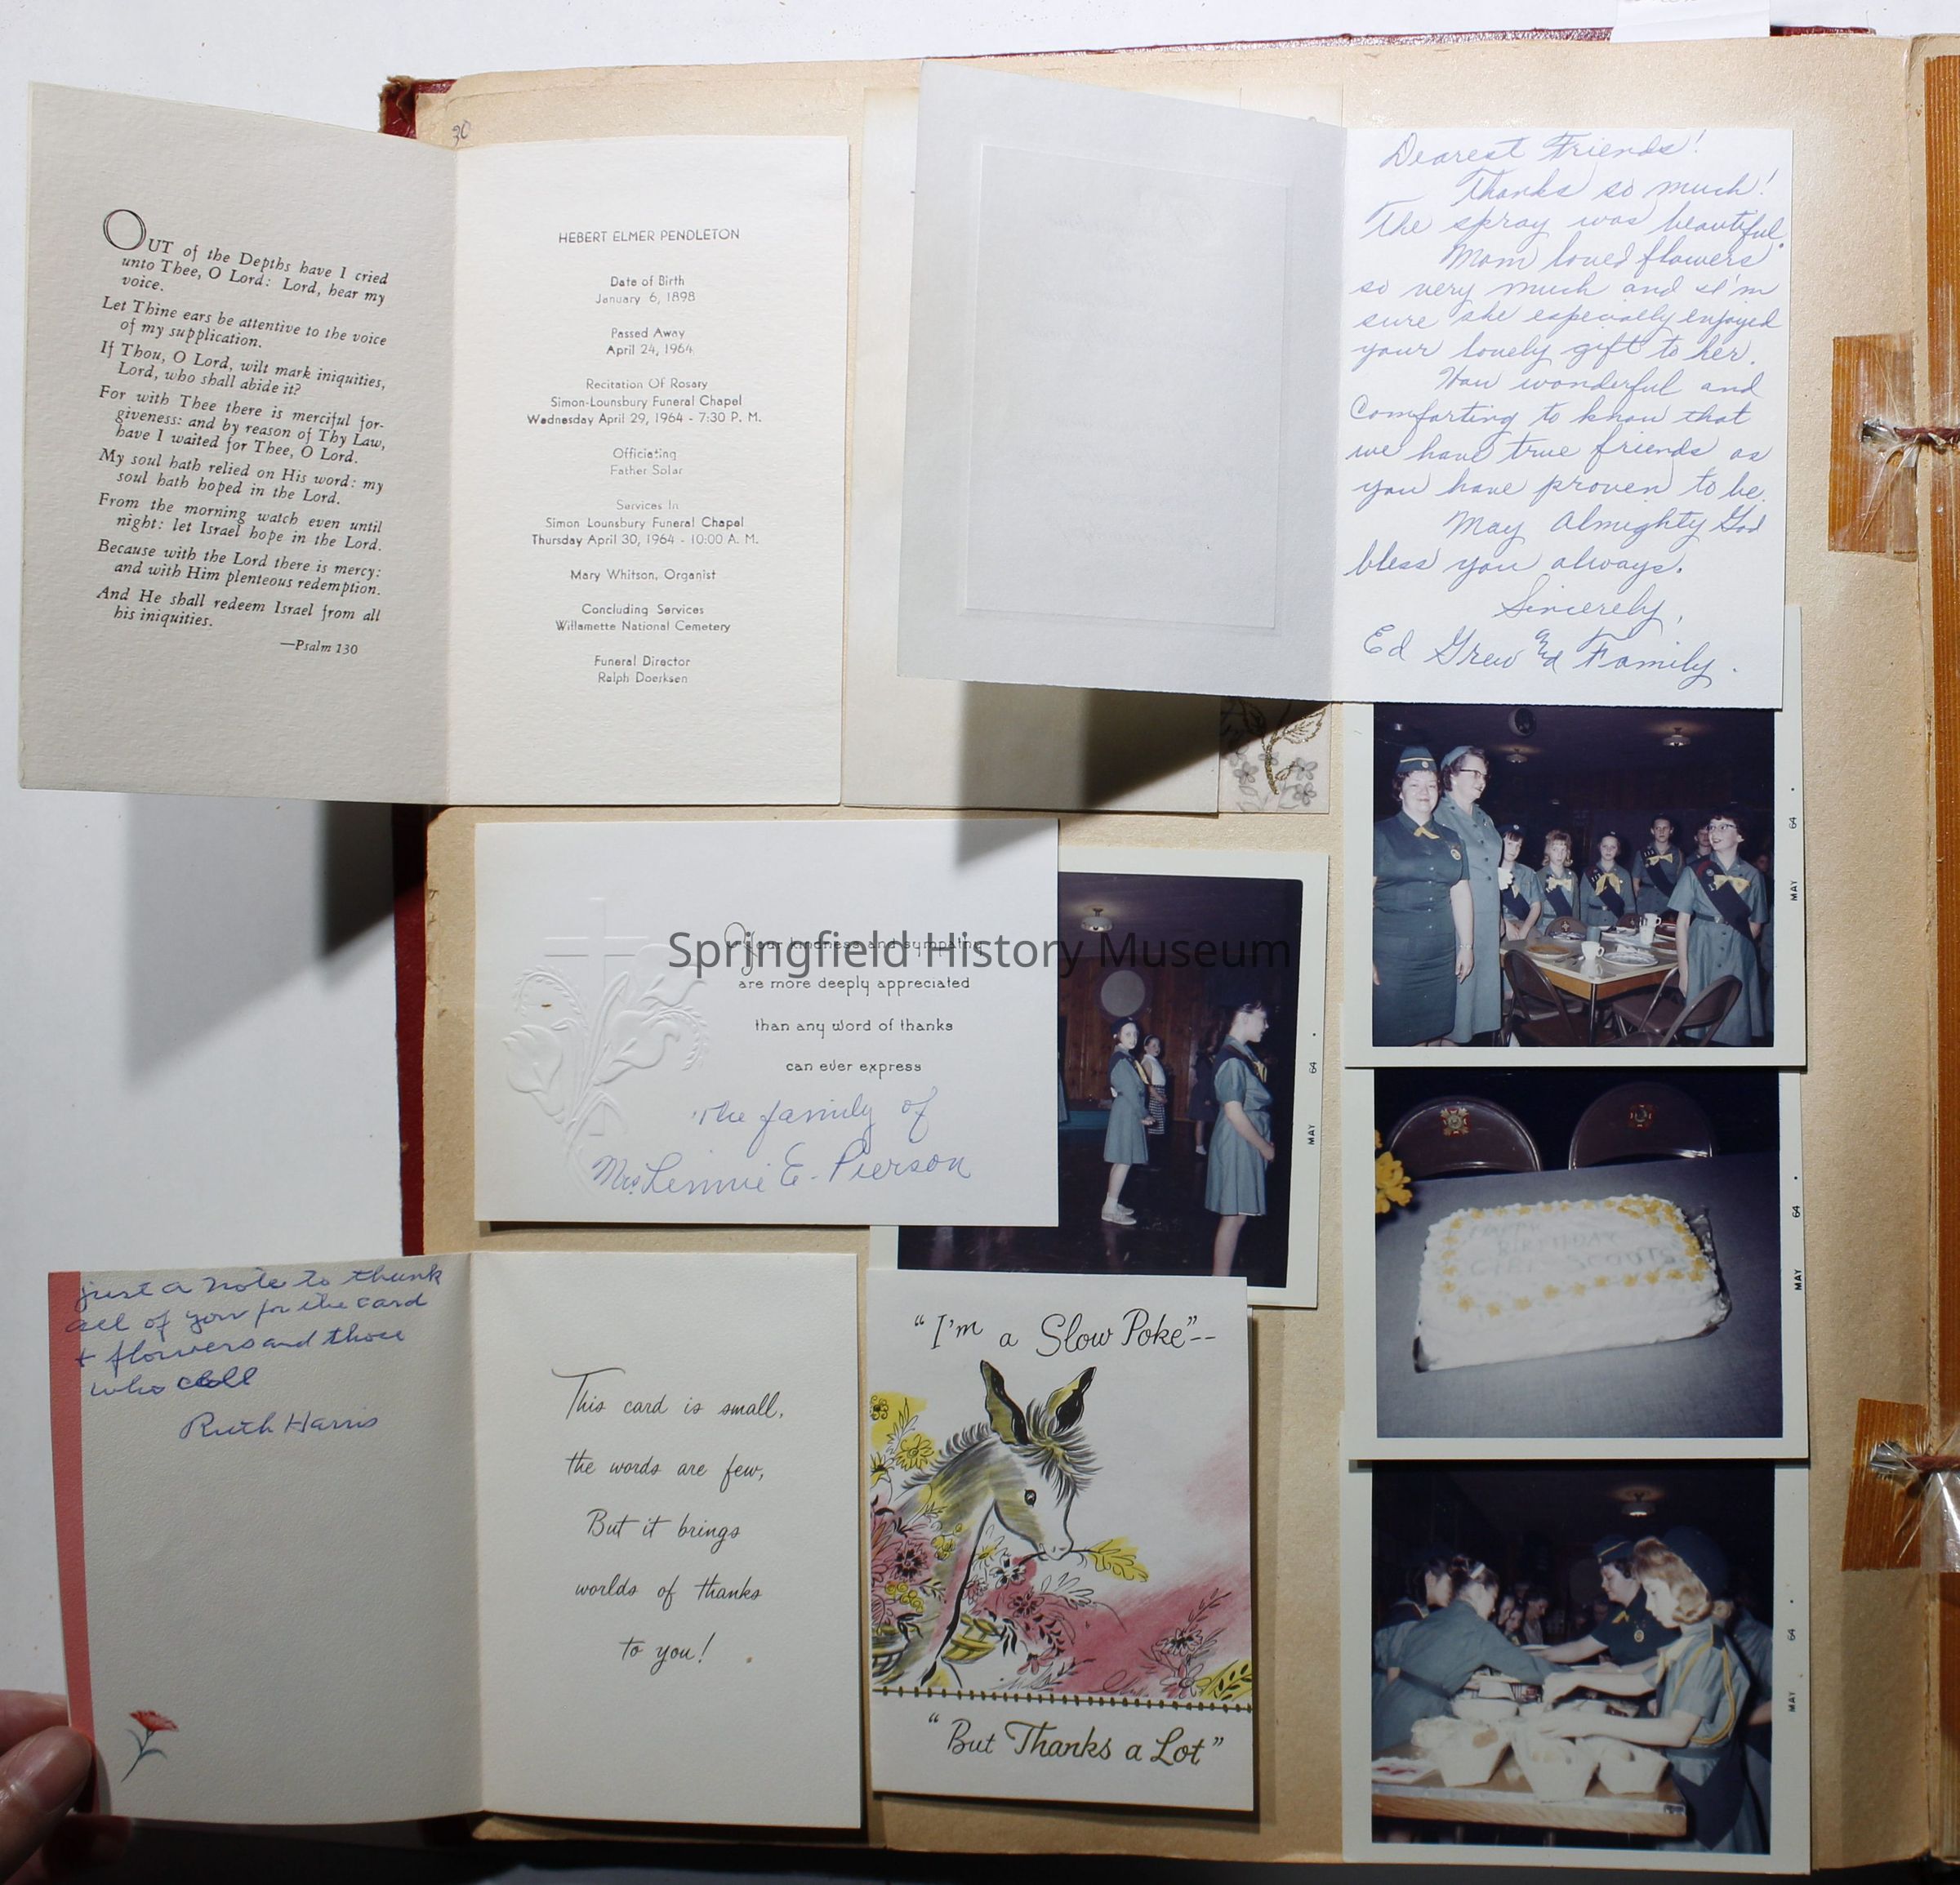 30
OUT of the Depths have I cried
unto Thee, O Lord: Lord, hear my
voice.
Let Thine ears be attentive to the voice
of my supplication.
If Thou, O Lord, wilt mark iniquities,
Lord, who shall abide it?
For with Thee there is merciful for-
giveness: and by reason of Thy Law,
have I waited for Thee, O Lord.
My soul hath relied on His word: my
soul hath hoped in the Lord.
From the morning watch even until
night: let Israel hope in the Lord.
Because with the Lord there is mercy:
and with Him plenteous redemption.
And He shall redeem Israel from all
his iniquities.
—Psalm 130
HEBERT ELMER PENDLETON
Date of Birth
January 6, 1898
Passed Away
April 24, 1964
Recitation Of Rosary
Simon-Lounsbury Funeral Chapel
Wednesday April 29, 1964 - 7:30 P. M.
Officiating
Father Solar
Services In
Simon Lounsbury Funeral Chapel
Thursday April 30, 1964 - 10:00 A. M.
Mary Whitson, Organist
Concluding Services
Willamette National Cemetery
Funeral Director
Ralph Doerksen
Dearest Friends!
Thanks so much!
The spray was beautiful.
Mom loved flowers
so very much and I'm
sure she especially enjoyed
your lovely gift to her.
How wonderful and
Comforting to know that
we have true friends as
you have proven to be.
May Almighty God
bless you always.
Sincerely,
Ed Grew and Family.
Your kindness and sympathy
are more deeply appreciated
than any word of thanks
can ever express
The family of
Mrs Lennie E. Pierson
Springfield History Museum
MAY • 64 •
MAY • 64 •
HAPPY
BIRTHDAY
GIRL SCOUTS
MAY • 64 •
MAY • 64 •
just a note to thank
all of you for the card
+ flowers and those
who call
Ruth Harris
This card is small,
the words are few,
But it brings
worlds of thanks
to you!
"I'm a Slow Poke"--
"But Thanks a Lot"